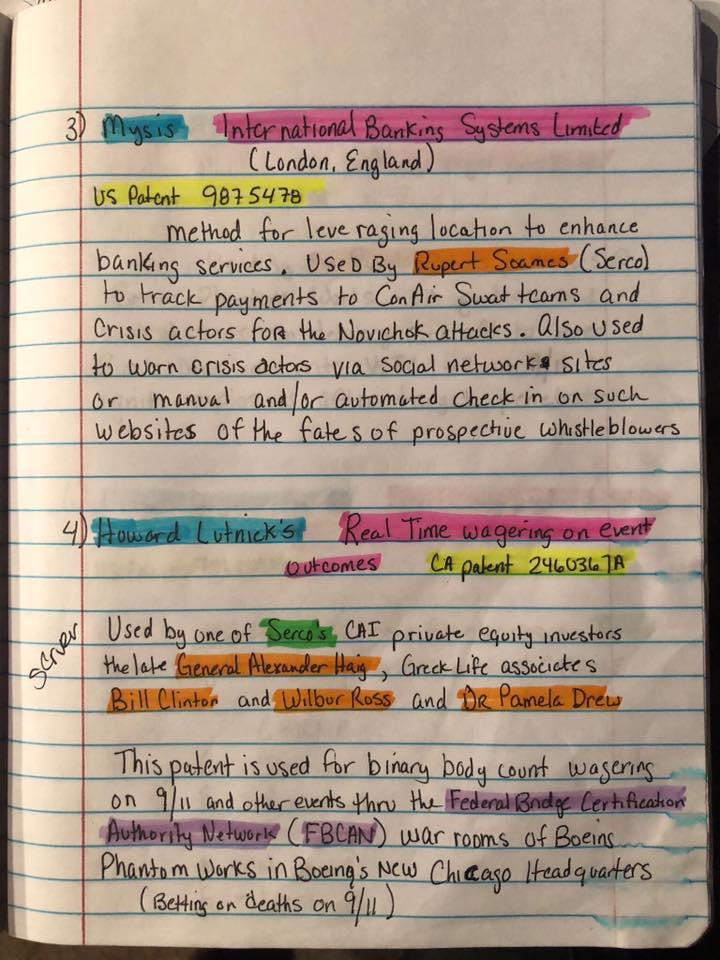 3) Mysis International Banking Systems Limited
(London, England)
US Patent 9875478
method for leveraging location to enhance
banking services. Used By Rupert Soames (Serco)
to track payments to ConAir Swat teams and
Crisis actors for the Novichok attacks. Also used
to warn crisis actors via social network sites
or manual and/or automated check in on such
websites of the fates of prospective whistleblowers
4) Howard Lutnick's Real Time wagering on event
outcomes CA patent 2460367A
Server
Used by one of Serco's CAI private equity investors
the late General Alexander Haig, Greek Life associates
Bill Clinton and Wilbur Ross and DR Pamela Drew
This patent is used for binary body count wagering
on 9/11 and other events thru the Federal Bridge Certification
Authority Network (FBCAN) war rooms of Boeing
Phantom Works in Boeing's New Chicago Headquarters
(Betting on deaths on 9/11)